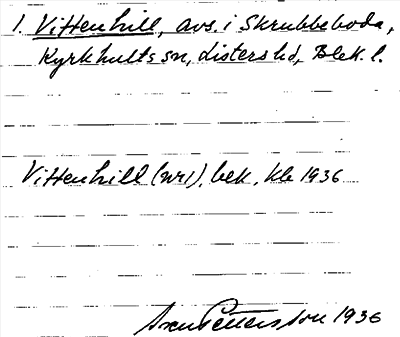 1. Vittenhill, avs. i Skrubbeboda,
Kyrkhults sn, Listers hd, Blek. l.
Vittenhill (nr 1), bek. Kb 1936
Pettersson 1936